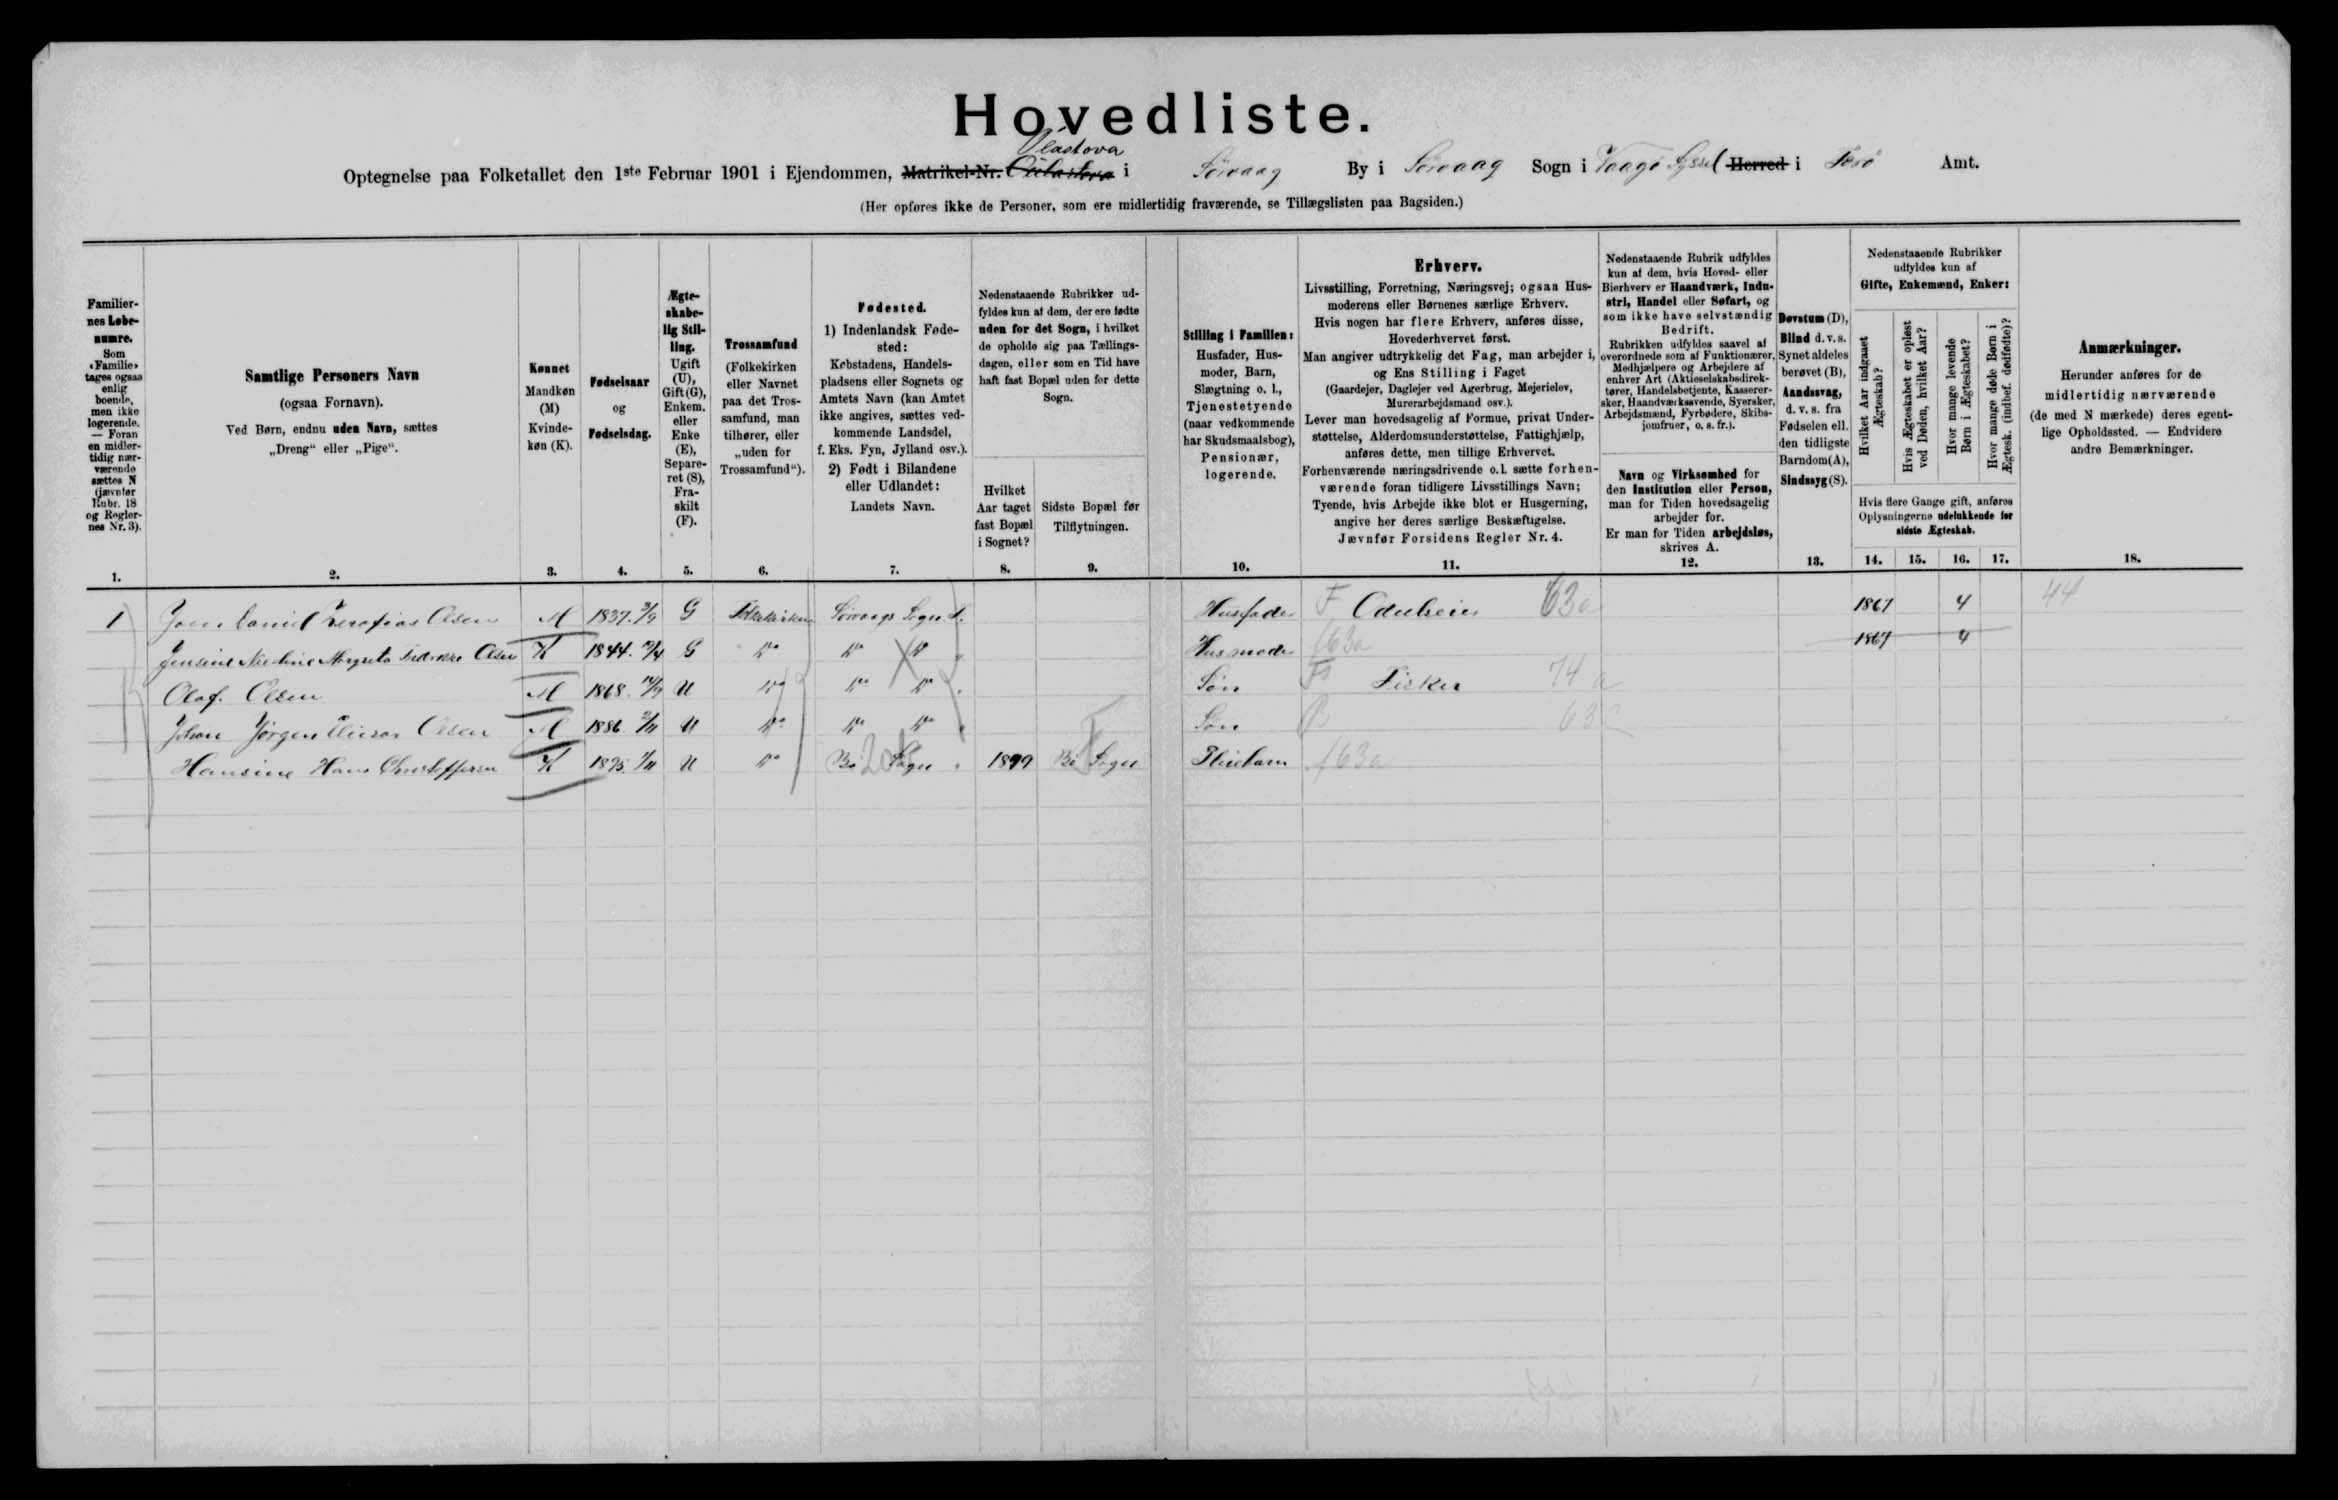 Hovedliste.
Optegnelse paa Folketallet den 1ste Februar 1901 i Ejendommen, Matrikel-Nr. i Sörvaag By i Sörvaag Sogn i Vaagö Syssel Herred i Færö Amt.
(Her opføres ikke de Personer, som ere midlertidig fraværende, se Tillægslisten paa Bagsiden.)
Familier-
nes Løbe-
numre.
Som
«Familie»
tages ogsaa
enlig
boende,
men ikke
logerende.
— Foran
en midler-
tidig nær-
værende
sættes N
(jævnfør
Rubr. 18
og Regler-
nes Nr. 3).
1.
Samtlige Personers Navn
(ogsaa Fornavn).
Ved Børn, endnu uden Navn, sættes
„Dreng“ eller „Pige“.
2.
Kønnet
Mandkøn
(M)
Kvinde-
køn (K).
3.
Fødselsaar
og
Fødselsdag.
4.
Ægte-
skabe-
lig Stil-
ling.
Ugift
(U),
Gift (G),
Enkem.
eller
Enke
(E),
Separe-
ret (S),
Fra-
skilt
(F).
5.
Trossamfund
(Folkekirken
eller Navnet
paa det Tros-
samfund, man
tilhører, eller
„uden for
Trossamfund“).
6.
Fødested.
1) Indenlandsk Føde-
sted:
Købstadens, Handels-
pladsens eller Sognets og
Amtets Navn (kan Amtet
ikke angives, sættes ved-
kommende Landsdel,
f. Eks. Fyn, Jylland osv.).
2) Født i Bilandene
eller Udlandet:
Landets Navn.
7.
Nedenstaaende Rubrikker ud-
fyldes kun af dem, der ere fødte
uden for det Sogn, i hvilket
de opholde sig paa Tællings-
dagen, eller som en Tid have
haft fast Bopæl uden for dette
Sogn.
Hvilket
Aar taget
fast Bopæl
i Sognet?
8.
Sidste Bopæl før
Tilflytningen.
9.
Stilling i Familien:
Husfader, Hus-
moder, Barn,
Slægtning o. l.,
Tjenestetyende
(naar vedkommende
har Skudsmaalsbog),
Pensionær,
logerende.
10.
Erhverv.
Livsstilling, Forretning, Næringsvej; ogsaa Hus-
moderens eller Børnenes særlige Erhverv.
Hvis nogen har flere Erhverv, anføres disse,
Hovederhvervet først.
Man angiver udtrykkelig det Fag, man arbejder i,
og Ens Stilling i Faget
(Gaardejer, Daglejer ved Agerbrug, Mejerielev,
Murerarbejdsmand osv.).
Lever man hovedsagelig af Formue, privat Under-
støttelse, Alderdomsunderstøttelse, Fattighjælp,
anføres dette, men tillige Erhvervet.
Forhenværende næringsdrivende o.l. sætte forhen-
værende foran tidligere Livsstillings Navn;
Tyende, hvis Arbejde ikke blot er Husgerning,
angive her deres særlige Beskæftigelse.
Jævnfør Forsidens Regler Nr. 4.
11.
Nedenstaaende Rubrik udfyldes
kun af dem, hvis Hoved- eller
Bierhverv er Haandværk, Indu-
stri, Handel eller Søfart, og
som ikke have selvstændig
Bedrift.
Rubrikken udfyldes saavel af
overordnede som af Funktionærer,
Medhjælpere og Arbejdere af
enhver Art (Aktieselskabsdirek-
tører, Handelsbetjente, Kasserer-
sker, Haandværkssvende, Syersker,
Arbejdsmænd, Fyrbødere, Skibs-
jomfruer, o. s. fr.).
Navn og Virksomhed for
den Institution eller Person,
man for Tiden hovedsagelig
arbejder for.
Er man for Tiden arbejdsløs,
skrives A.
12.
Døvstum (D),
Blind d. v. s.
Synet aldeles
berøvet (B),
Aandssvag,
d. v. s. fra
Fødselen ell.
den tidligste
Barndom (A),
Sindssyg (S).
13.
Nedenstaaende Rubrikker
udfyldes kun af
Gifte, Enkemænd, Enker:
Hvilket Aar indgaaet
Ægteskab?
Hvis Ægteskabet er opløst
ved Døden, hvilket Aar?
Hvor mange levende
Børn i Ægteskabet?
Hvor mange døde Børn i
Ægtesk. (indbef. dødfødte)?
Hvis flere Gange gift, anføres
Oplysningerne udelukkende for
sidste Ægteskab.
14. 15. 16. 17.
Anmærkninger.
Herunder anføres for de
midlertidig nærværende
(de med N mærkede) deres egent-
lige Opholdssted. — Endvidere
andre Bemærkninger.
18.
1 Olsen M 1837 G Folkekirken Sörvaags Sogn Husfader F 63a 1867 4 44
Olsen K 1844 G do do do Husmoder 63a 1867 4
Olaf Olsen M 1868 U do do do Søn Fisker 74 a
Johan Jørgen Olsen M 1886 U do do do Søn 63
Hansine Hans Christoffersen K 1895 U do Bö Sogn 1899 Bö Sogn Pleiebarn 63a